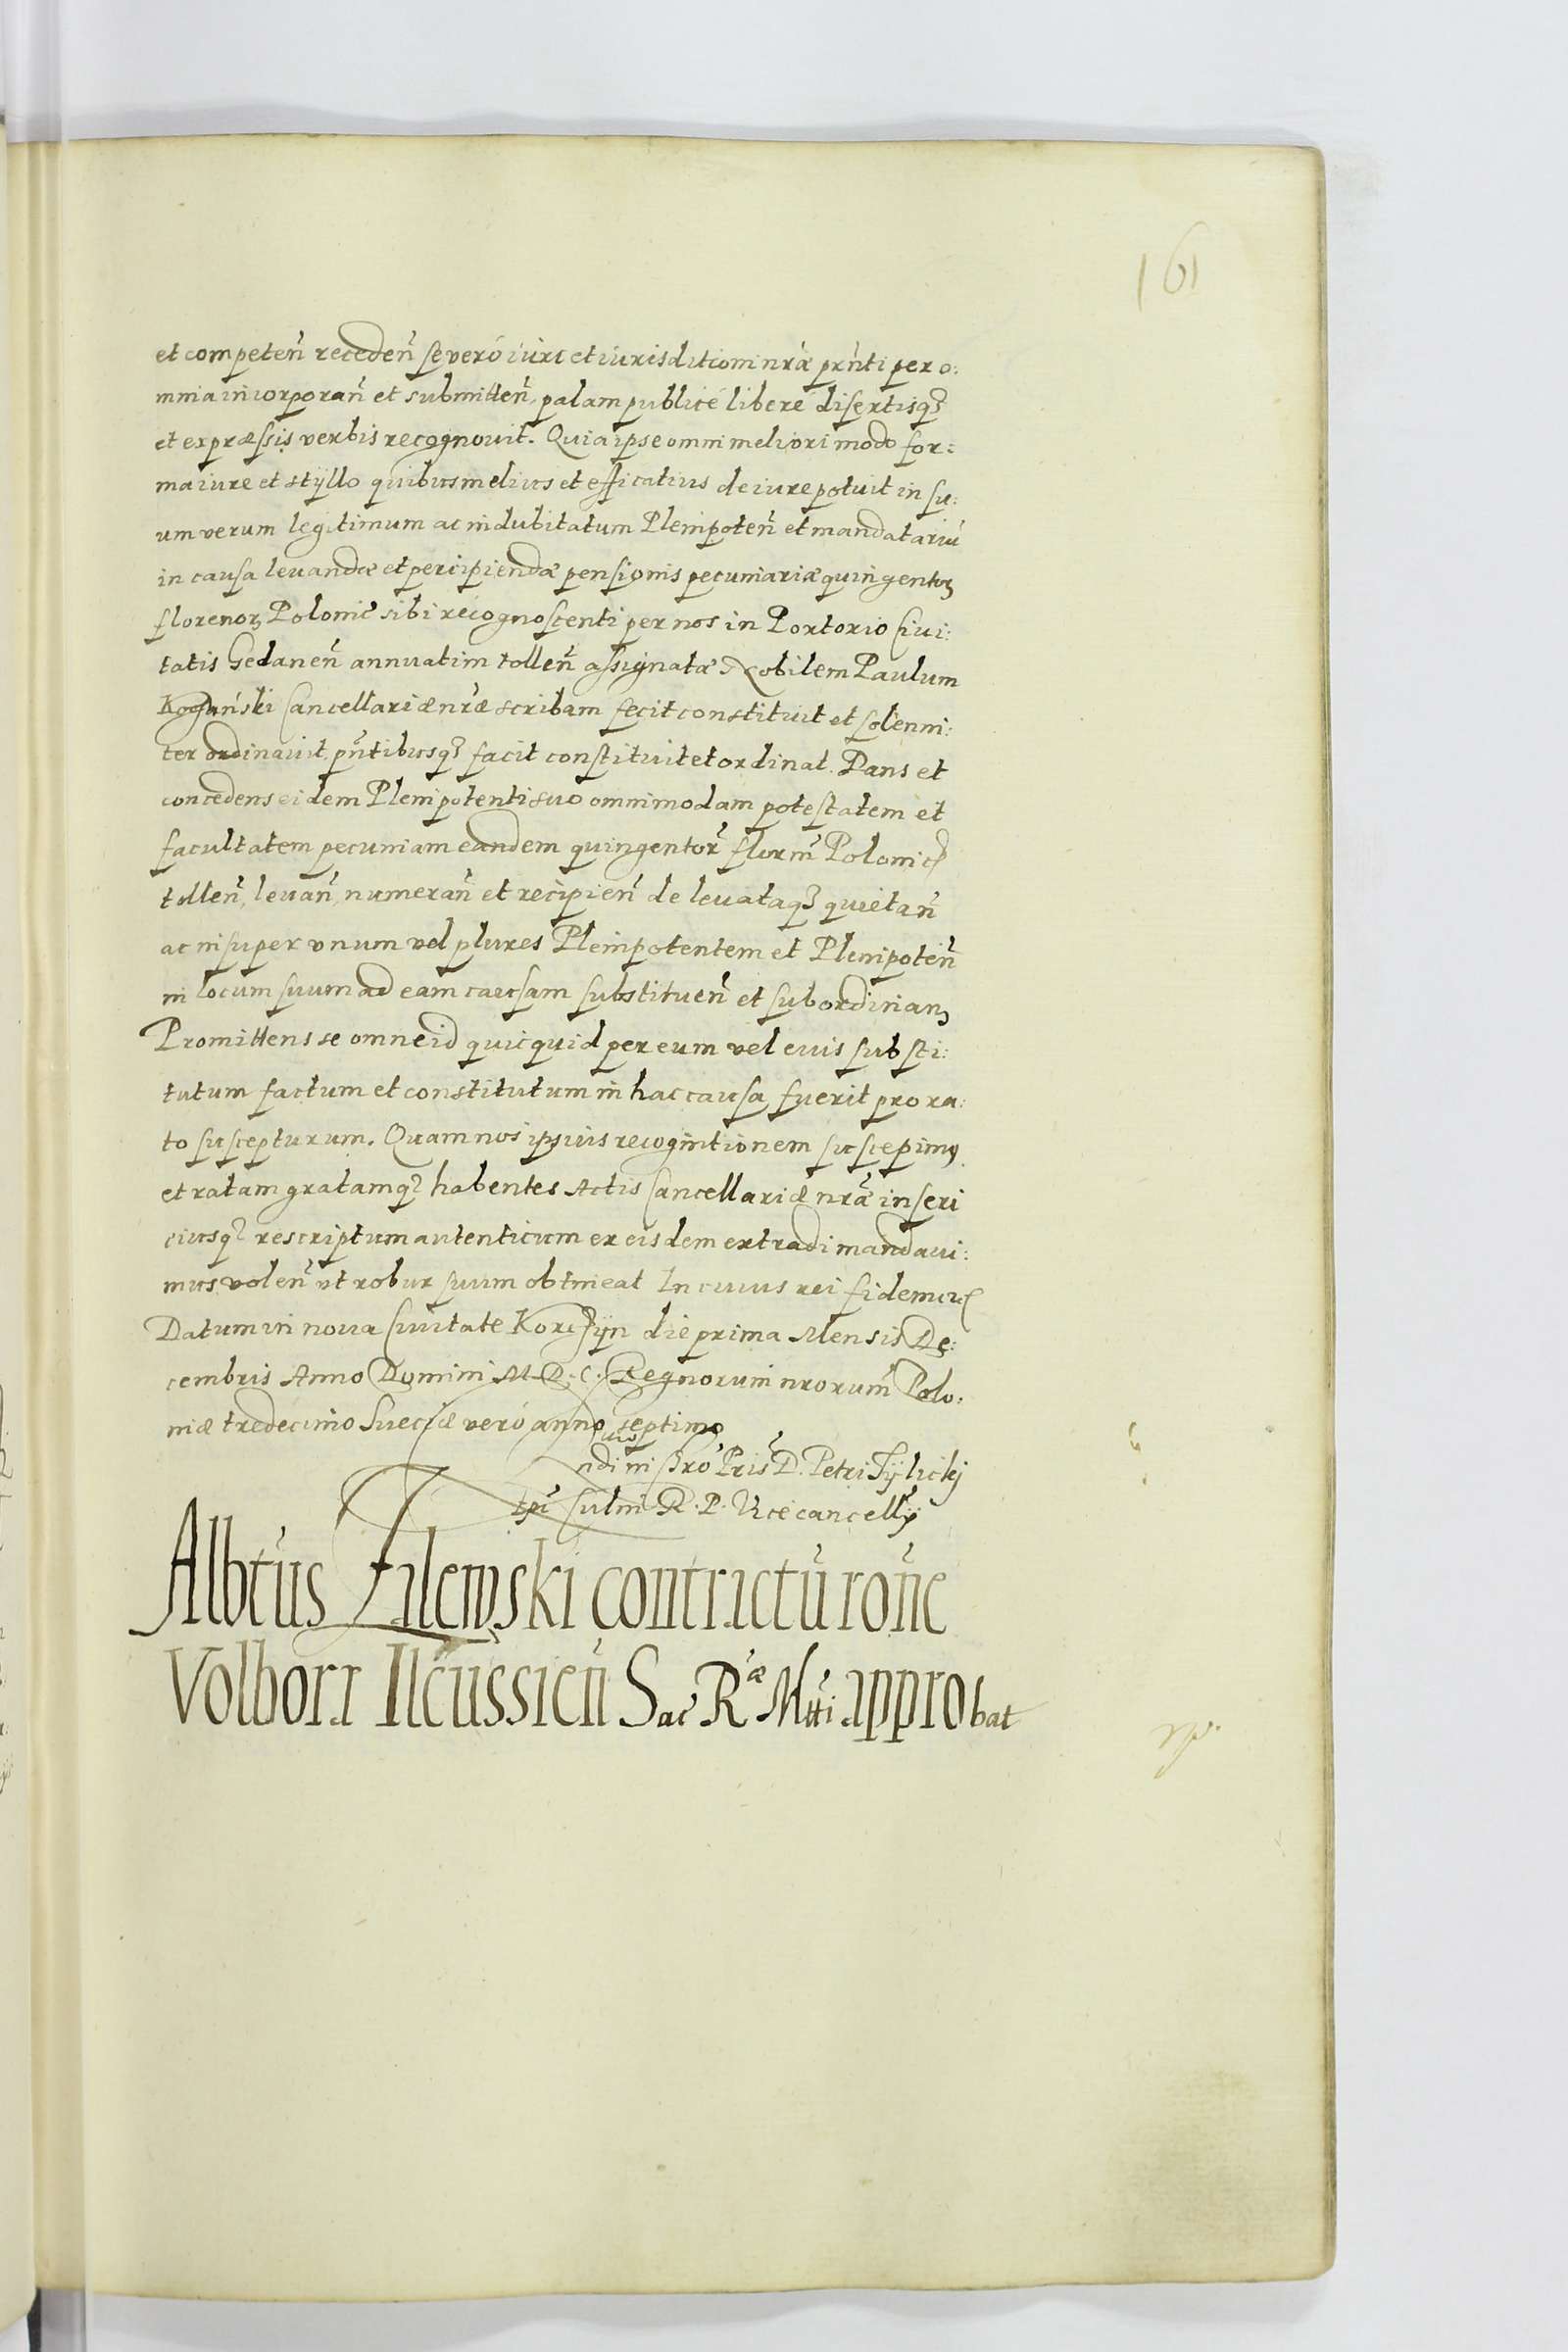 161
et competeñ recedeñ se vero iure et iurisditioni nrae prnti per o:
mnia incorporañ et submitteñ, palam publice libere disertisq3
et expraessis verbis recognouit. Quia ipse omni meliori modo for:
ma iure et styllo quibus melius et efficatius de iure potuit in su:
um verum legitimum ac indubitatum Plenipoteñ et mandatariũ
in causa leuandae et percipiendae pensionis pecuniariae quingentoꝝ
florenoꝝ Polonic sibi recognoscenti per nos in Portorio Ciui:
tatis Gedaneñ annuatim tolleñ assignatae Nobilem Paulum
Cancellariae nrae scribam fecit constituit et solenni:
ter ordinauit, pñtibusq3 facit constituit et ordinat. Dans et
concedens eidem Plenipotenti suo omnimodam potestatem et
facultatem pecuniam eandem quingentor florm Polonic
tolleñ, leuañ, numerañ et recipieñ de leuataq3 quietañ
ac insuper vnum vel plures Plenipotentem et Plenipoteñ
in locum suum ad eam causam substitueñ et subordinan
Promittens se omne id quicquid per eum vel euis substi:
tutum factum et constitutum in hac causa fuerit pro ra:
to suscepturum. Quam nos ipsius recognitionem suscepimꝯ
et ratam gratamq3 habentes Actis Cancellariae nrae inseri
eiusq3 rescriptum autenticum ex eisdem extradi mandaui:
mus, voleñ vt robur suum obtineat In cuius rei fidem
Datum in noua Ciuitate Korczyn die prima Mensis De:
cembris Anno Domini M. D. C. Regnorum nrorum Polo:
niae tredecimo Sueciae vero anno septimo
Pris D. Petri Tylicky
Epi Culm R. P. Vicecancelly
Albtus Filewski contractũ roñe
Volbora Ilcussieñ Sac Rae Mtti approbat